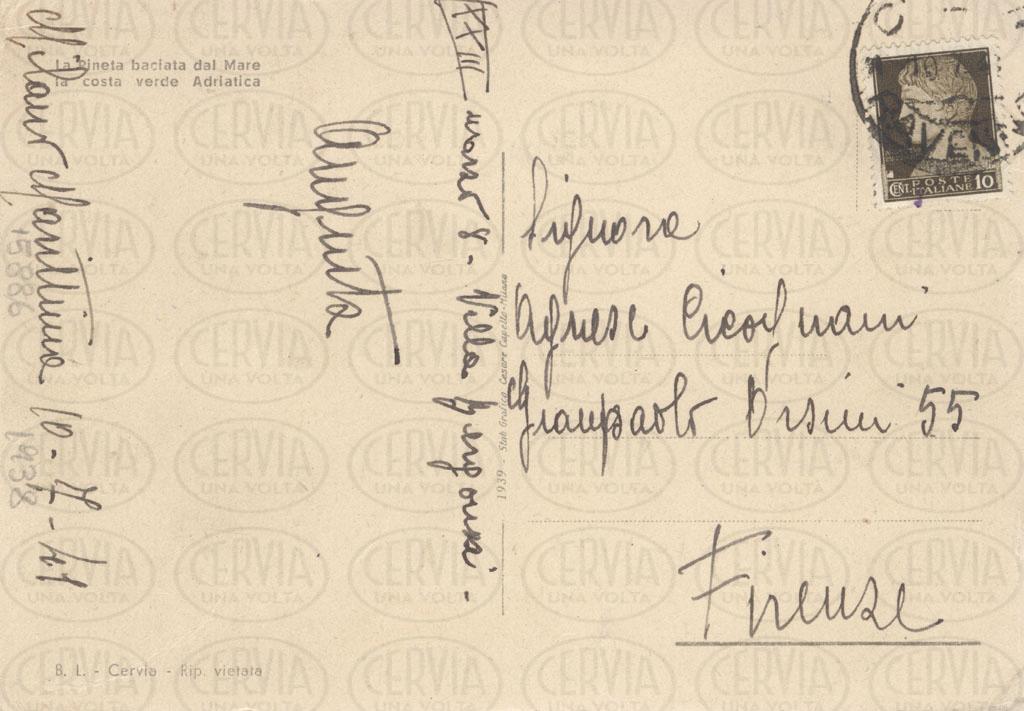 La Pineta baciata dal Mare
la costa verde Adriatica
Milano Marittima 10-VII-41
XXIII
Augusta
1939 - Stab Grafico Cesare Capello-Milano
Signora
Agnese Cicognani
Gianpaolo Orsini 55
Firenze
POSTE
CENT. ITALIANE 10
RAVEN
B. L. - Cervia - Rip. vietata
15886
1938
CERVIA
UNA VOLTA